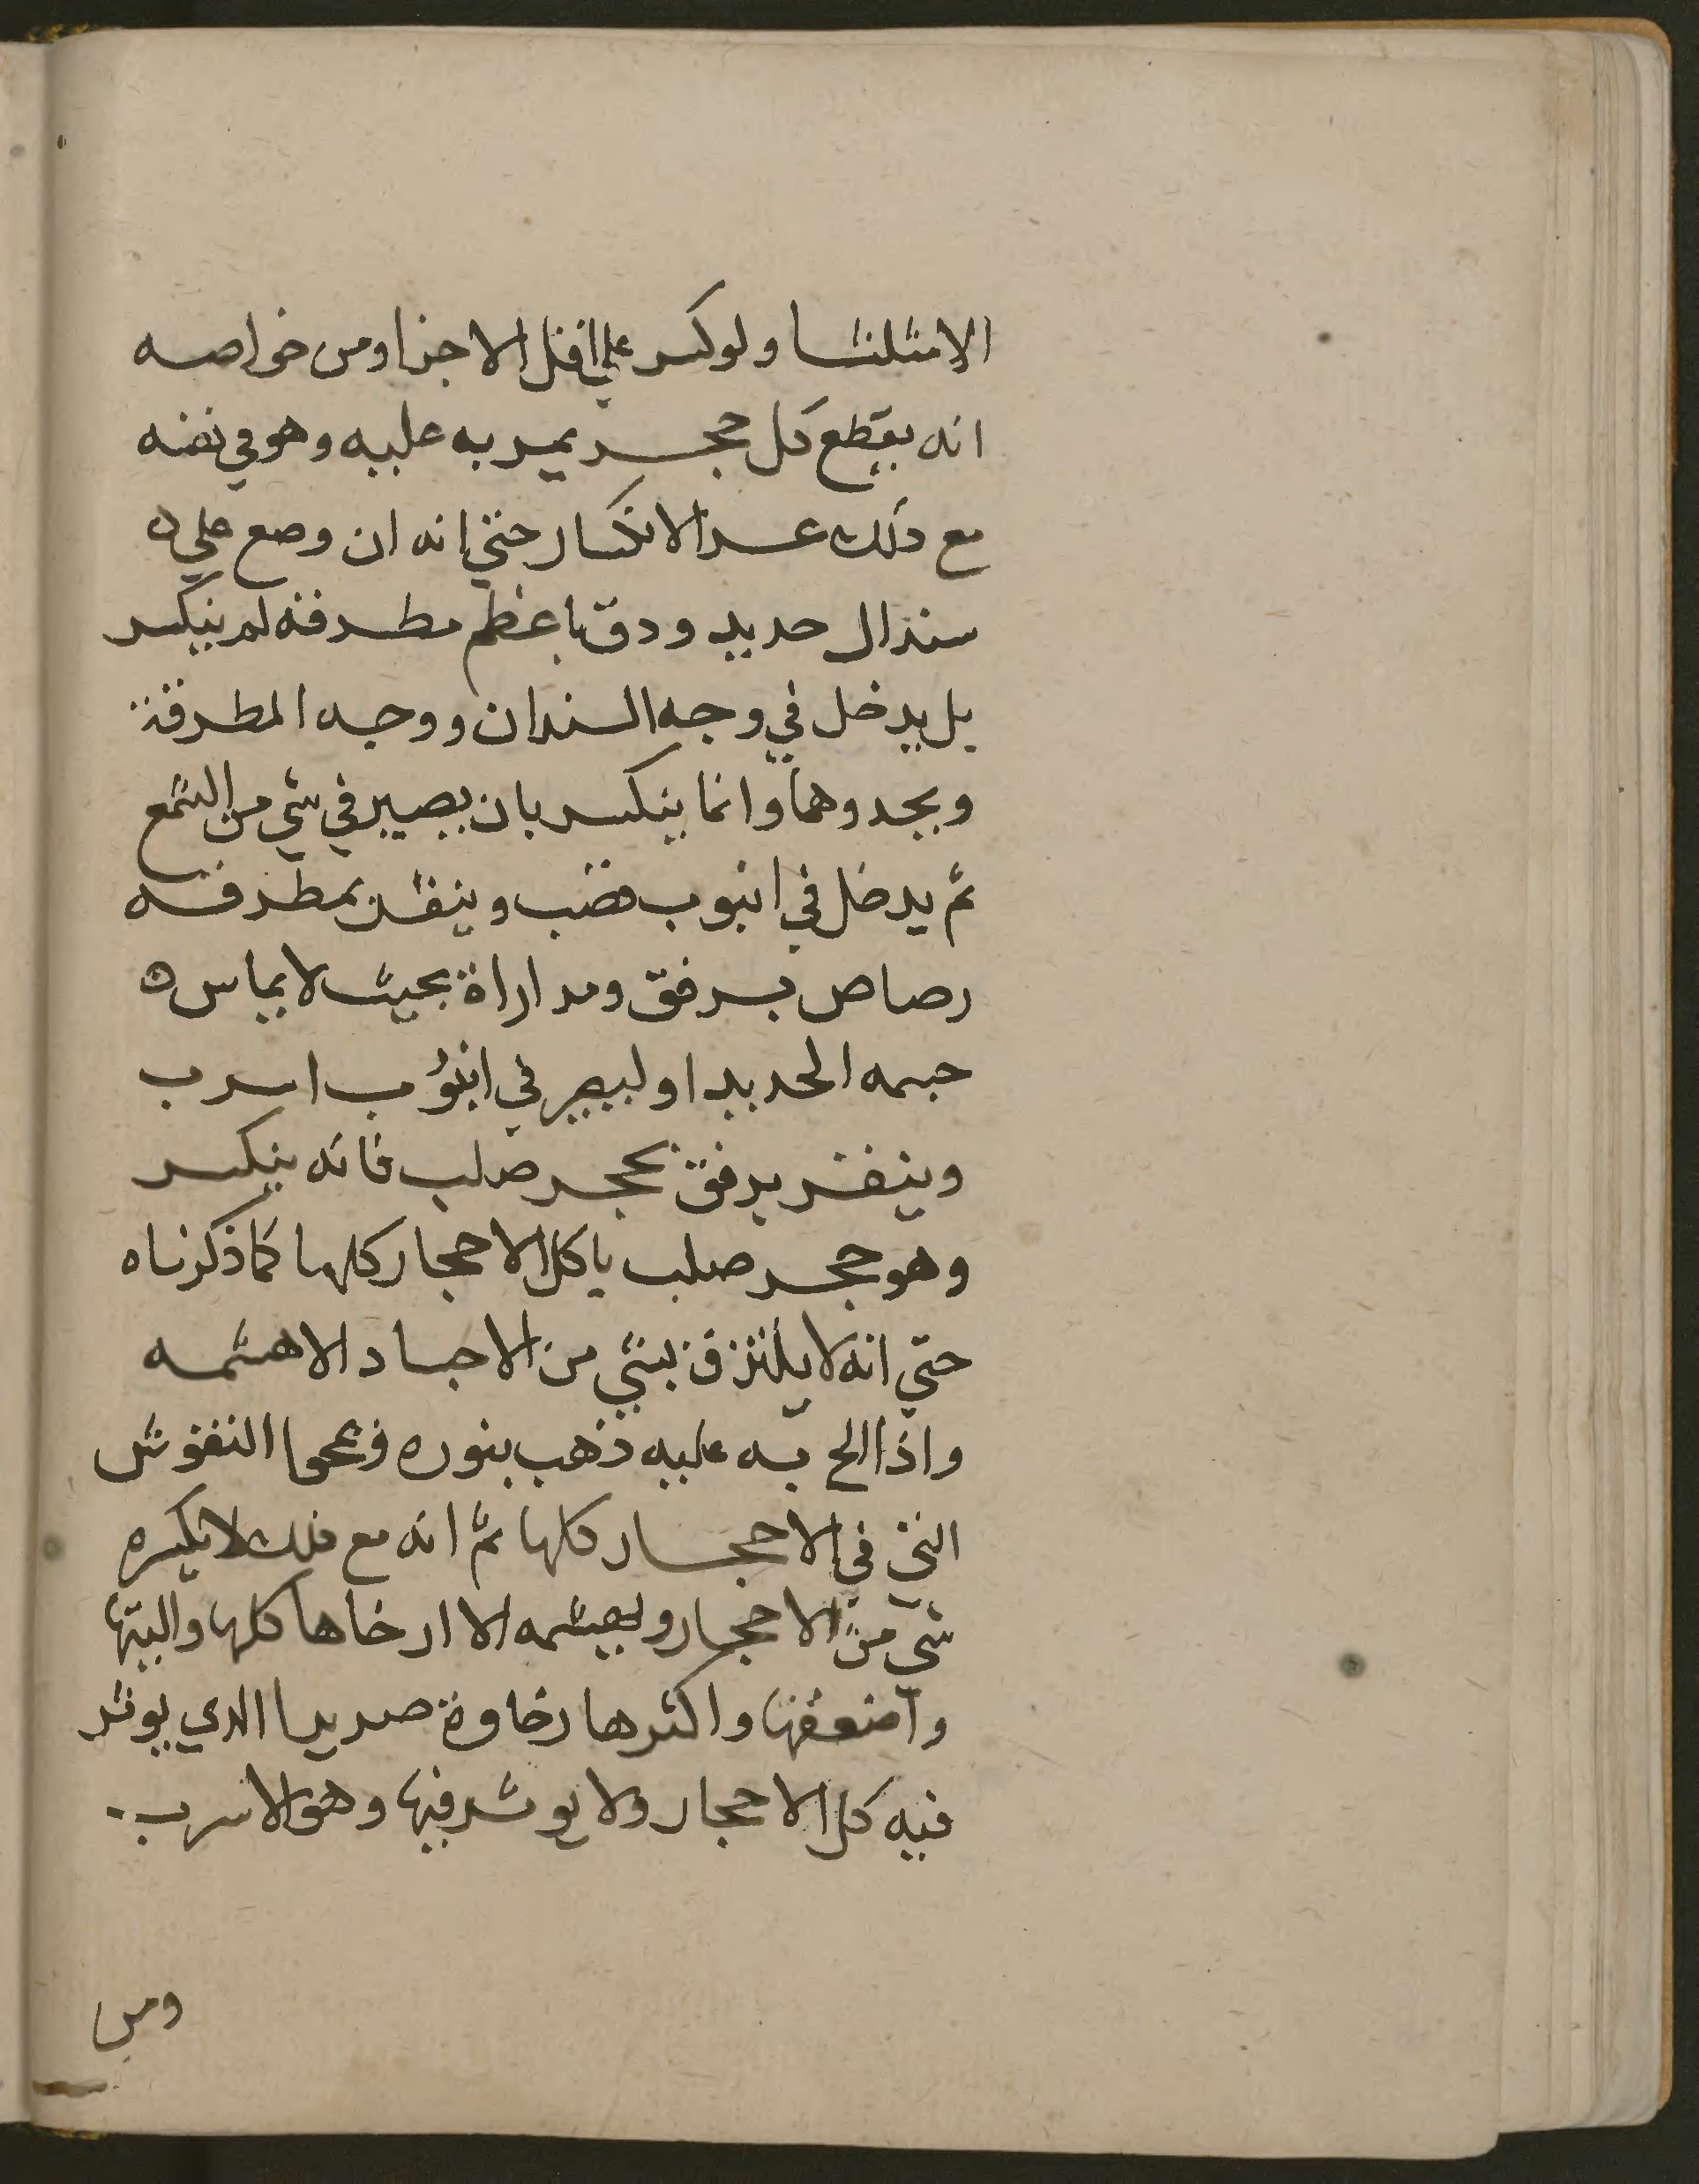 الا مثلثا ولو كسر علي اقل الاجزا ومن خواصه
انه يقطع كل حجر يمر به عليه وهو في نفسه
مع ذلك عسر الانكسار حتي انه ان وضع علي
سندال حديد ودق باعظم مطرقه لم ينكسر
بل يدخل في وجه السندان ووجه المطرقة
وانما ينكسر بان يصير في شي من الشمع
ثم يدخل في انبوب قصب وينقر بمطرقه
رصاص برفق ومداراة بحيث لا يماس
جسمه الحديد او ليصير في انبوب اسرب
وينقر برفق بحجر صلب فانه ينكسر
وهو حجر صلب ياكل الاحجار كلها كما ذكرناه
حتي انه لا يلتزق بشي من الاجساد الا هشمه
واذا الح به عليه ذهب بنوره ومحا النقوش
التي في الاحجار كلها ثم انه مع ذلك لا يكسره
شي من الاحجار ويهشمه الا ارخاها كلها والينها
واضعفها واكثرها رخاوة صديدا الدي يوثر
فيه كل الاحجار ولا يوثر فيها وهو الاسرب
ومن